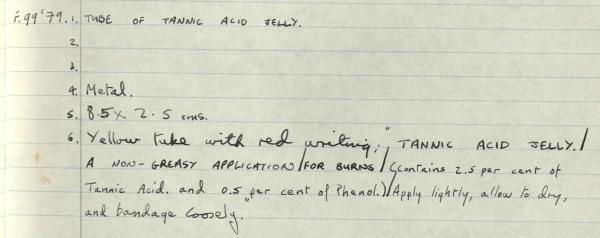 F.99'79. 1. TUBE OF TANNIC ACID JELLY.
2.
3.
4. Metal.
5. 8.5 x 2.5 cms.
6. Yellow tube with red writing; "TANNIC ACID JELLY./
A NON-GREASY APPLICATION/FOR BURNS/(Contains 2.5 per cent of
Tannic Acid. and 0.5 per cent of Phenol.)/Apply lightly, allow to dry,
and bandage loosely."